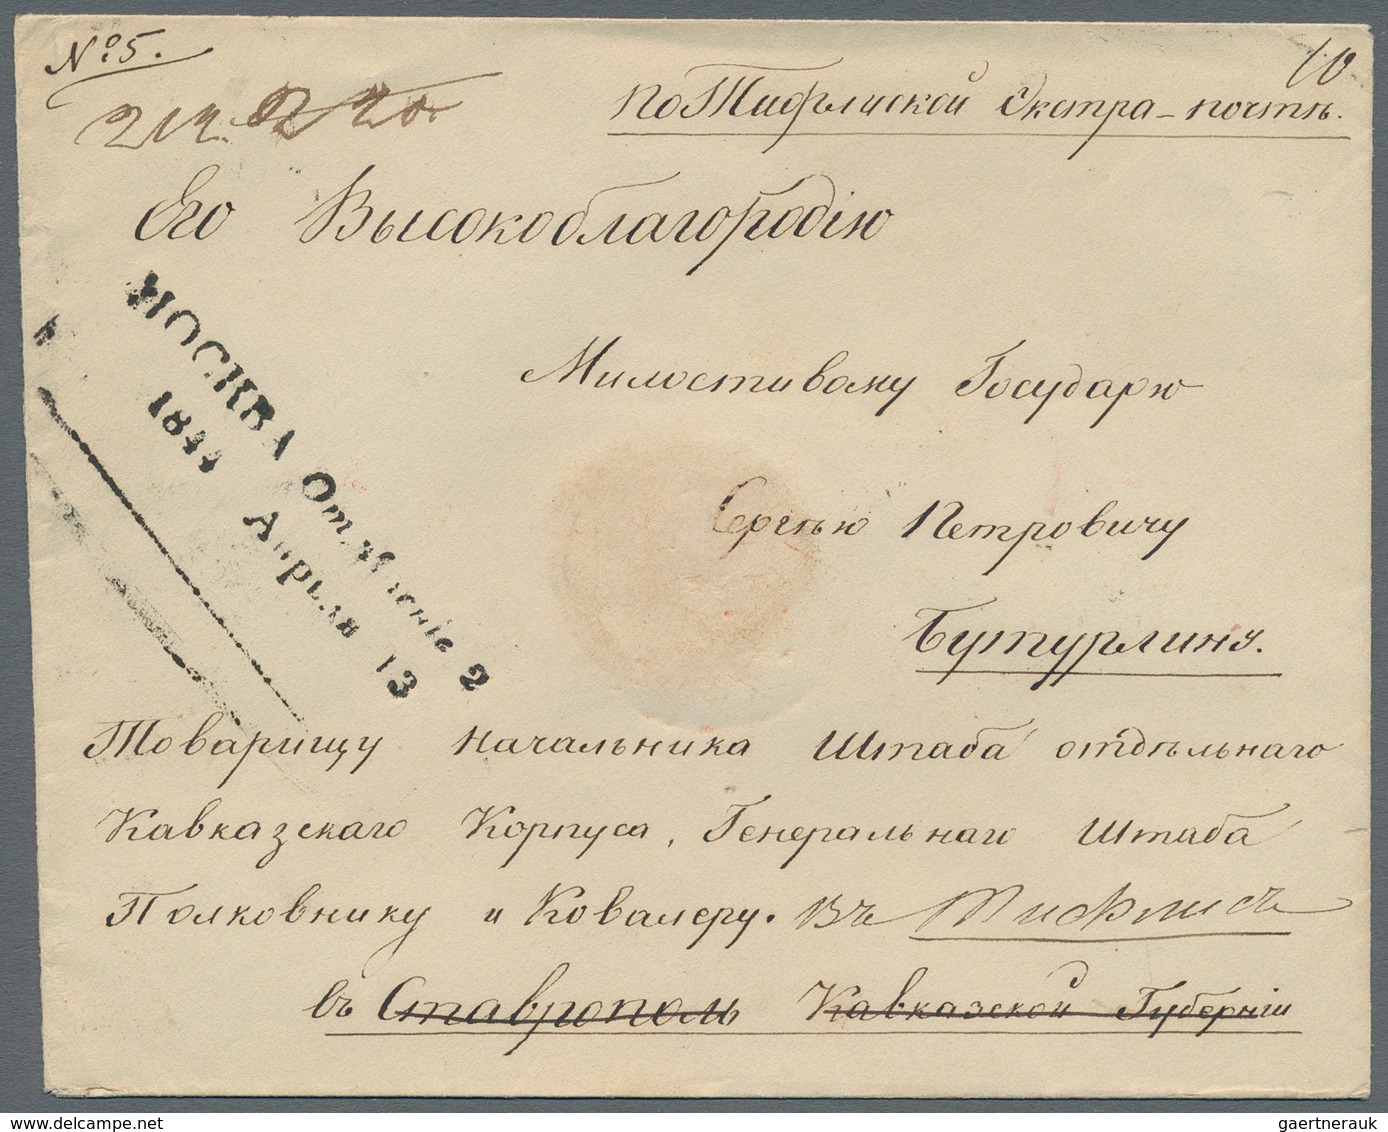 № 5.
10
по Тифлиской Экстра-почтѣ.
Его Высокоблагородію
МОСКВА Отдѣленіе 2
1844 Апрѣля 13
Милостивому Государю
Сергѣю Петровичу
Бутурлину.
Товарищу Начальника Штаба отдѣльнаго
Кавказскаго Корпуса, Генеральнаго Штаба
Полковнику и Ковалеру. Въ Тифлисъ
въ Ставрополь Кавказской Губерніи
gaertnerauk